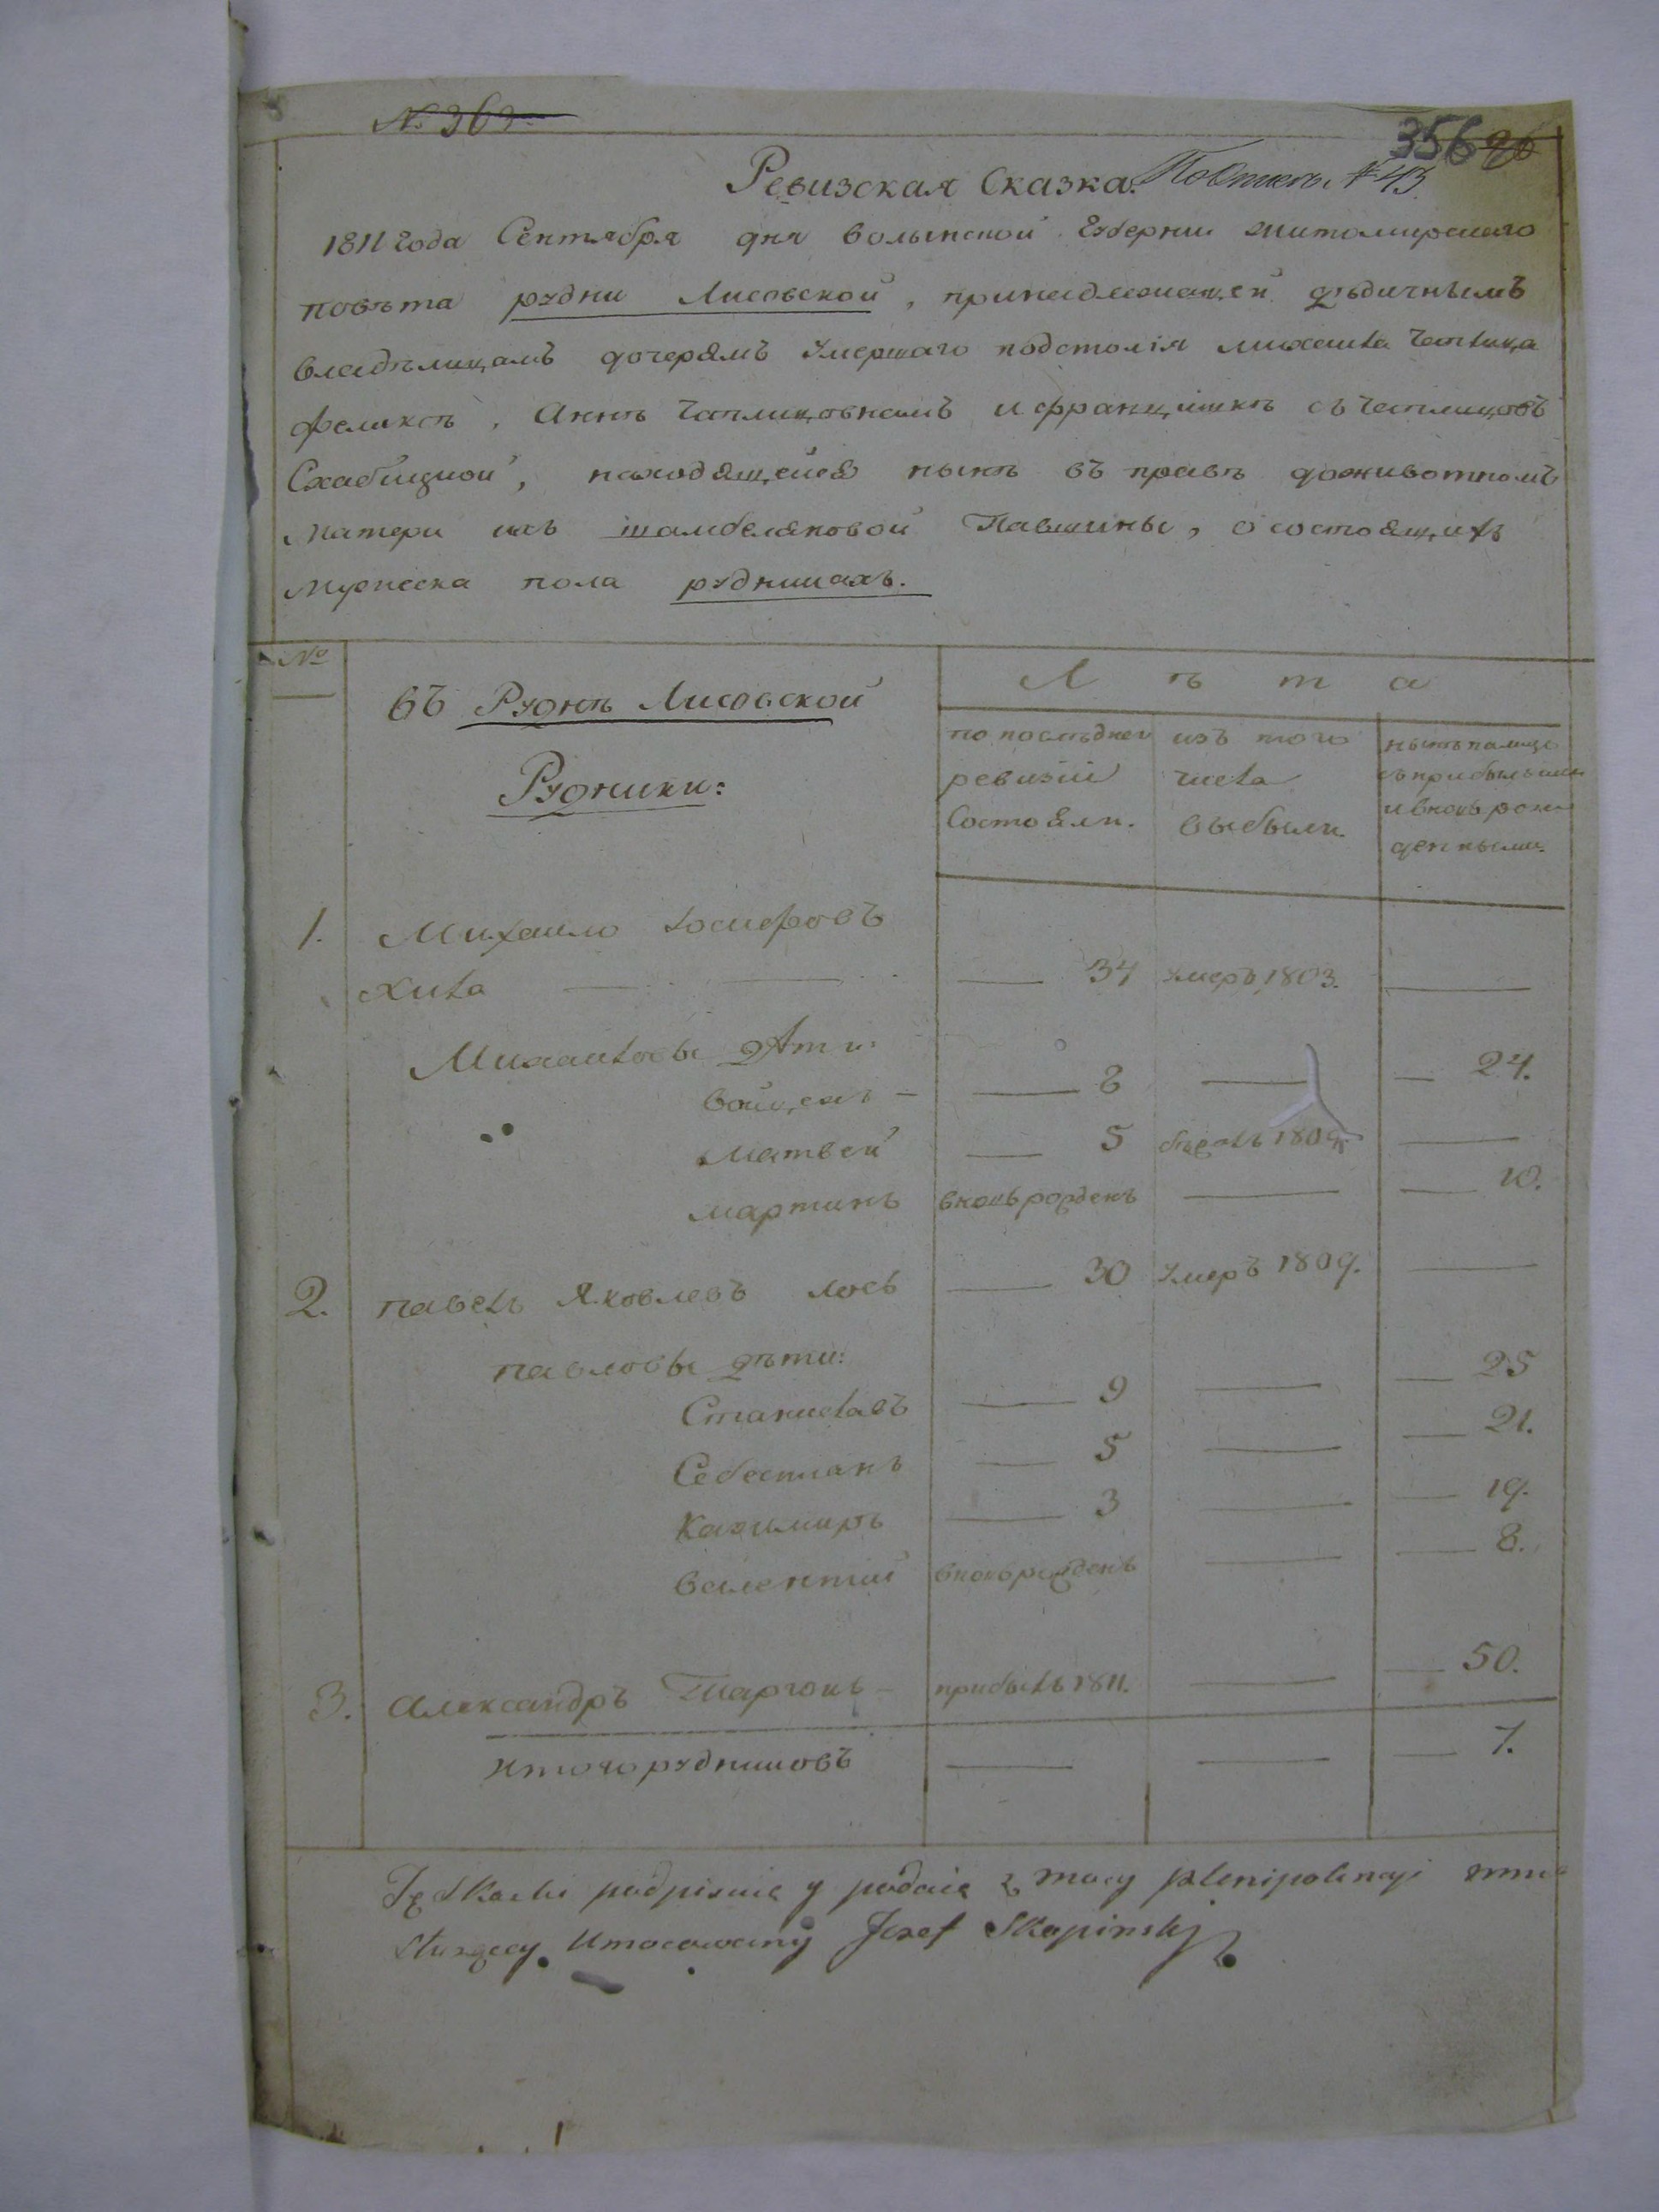 № 363
356 96
Ревизская Сказка. № 43
1811 года Сентября дня Волынской Губернии Житомирскаго
повѣта рудни Лисовской, принадлежащей дѣдичнымъ
владѣлицамъ дочерямъ умершаго подстолія Михаила Чаплица
Феликсѣ, Аннѣ Чаплицовнамъ и Францишкѣ съ Чаплицовъ
находящейся нынѣ въ правѣ доживотномъ
матери ихъ шамбеляновой Павшины, о состоящихъ
мужеска пола рудникахъ.
№
Въ Руднѣ Лисовской
Рудники:
Л ѣ т а
по послѣдней ревизіи Состояли.
изъ того числа выбыли.
нынѣ налицо съ прибылыми и вновь рожденными.
1. Михайло Іосифовъ
Хила — — 34 умеръ 1803. —
Михайловы дѣти:
Войцехъ — 8 — 24.
Матвей — 5 бѣжалъ 1809. —
Мартинъ вновь рожденъ — 10.
2. Павелъ Яковлевъ Лось — 30 умеръ 1809. —
Павловы дѣти:
Станиславъ — 9 — 25
Себестіанъ — 5 — 21.
Казимиръ — 3 — 19.
Валентій вновь рожденъ — 8.
3. Александръ прибылъ 1811. — 50.
Итого рудниковъ — — 7.
Tę Skaskę podpisuię y podaię z mocy plenipotencyi mnie
służącey Umocowany Jozef Skapinskj